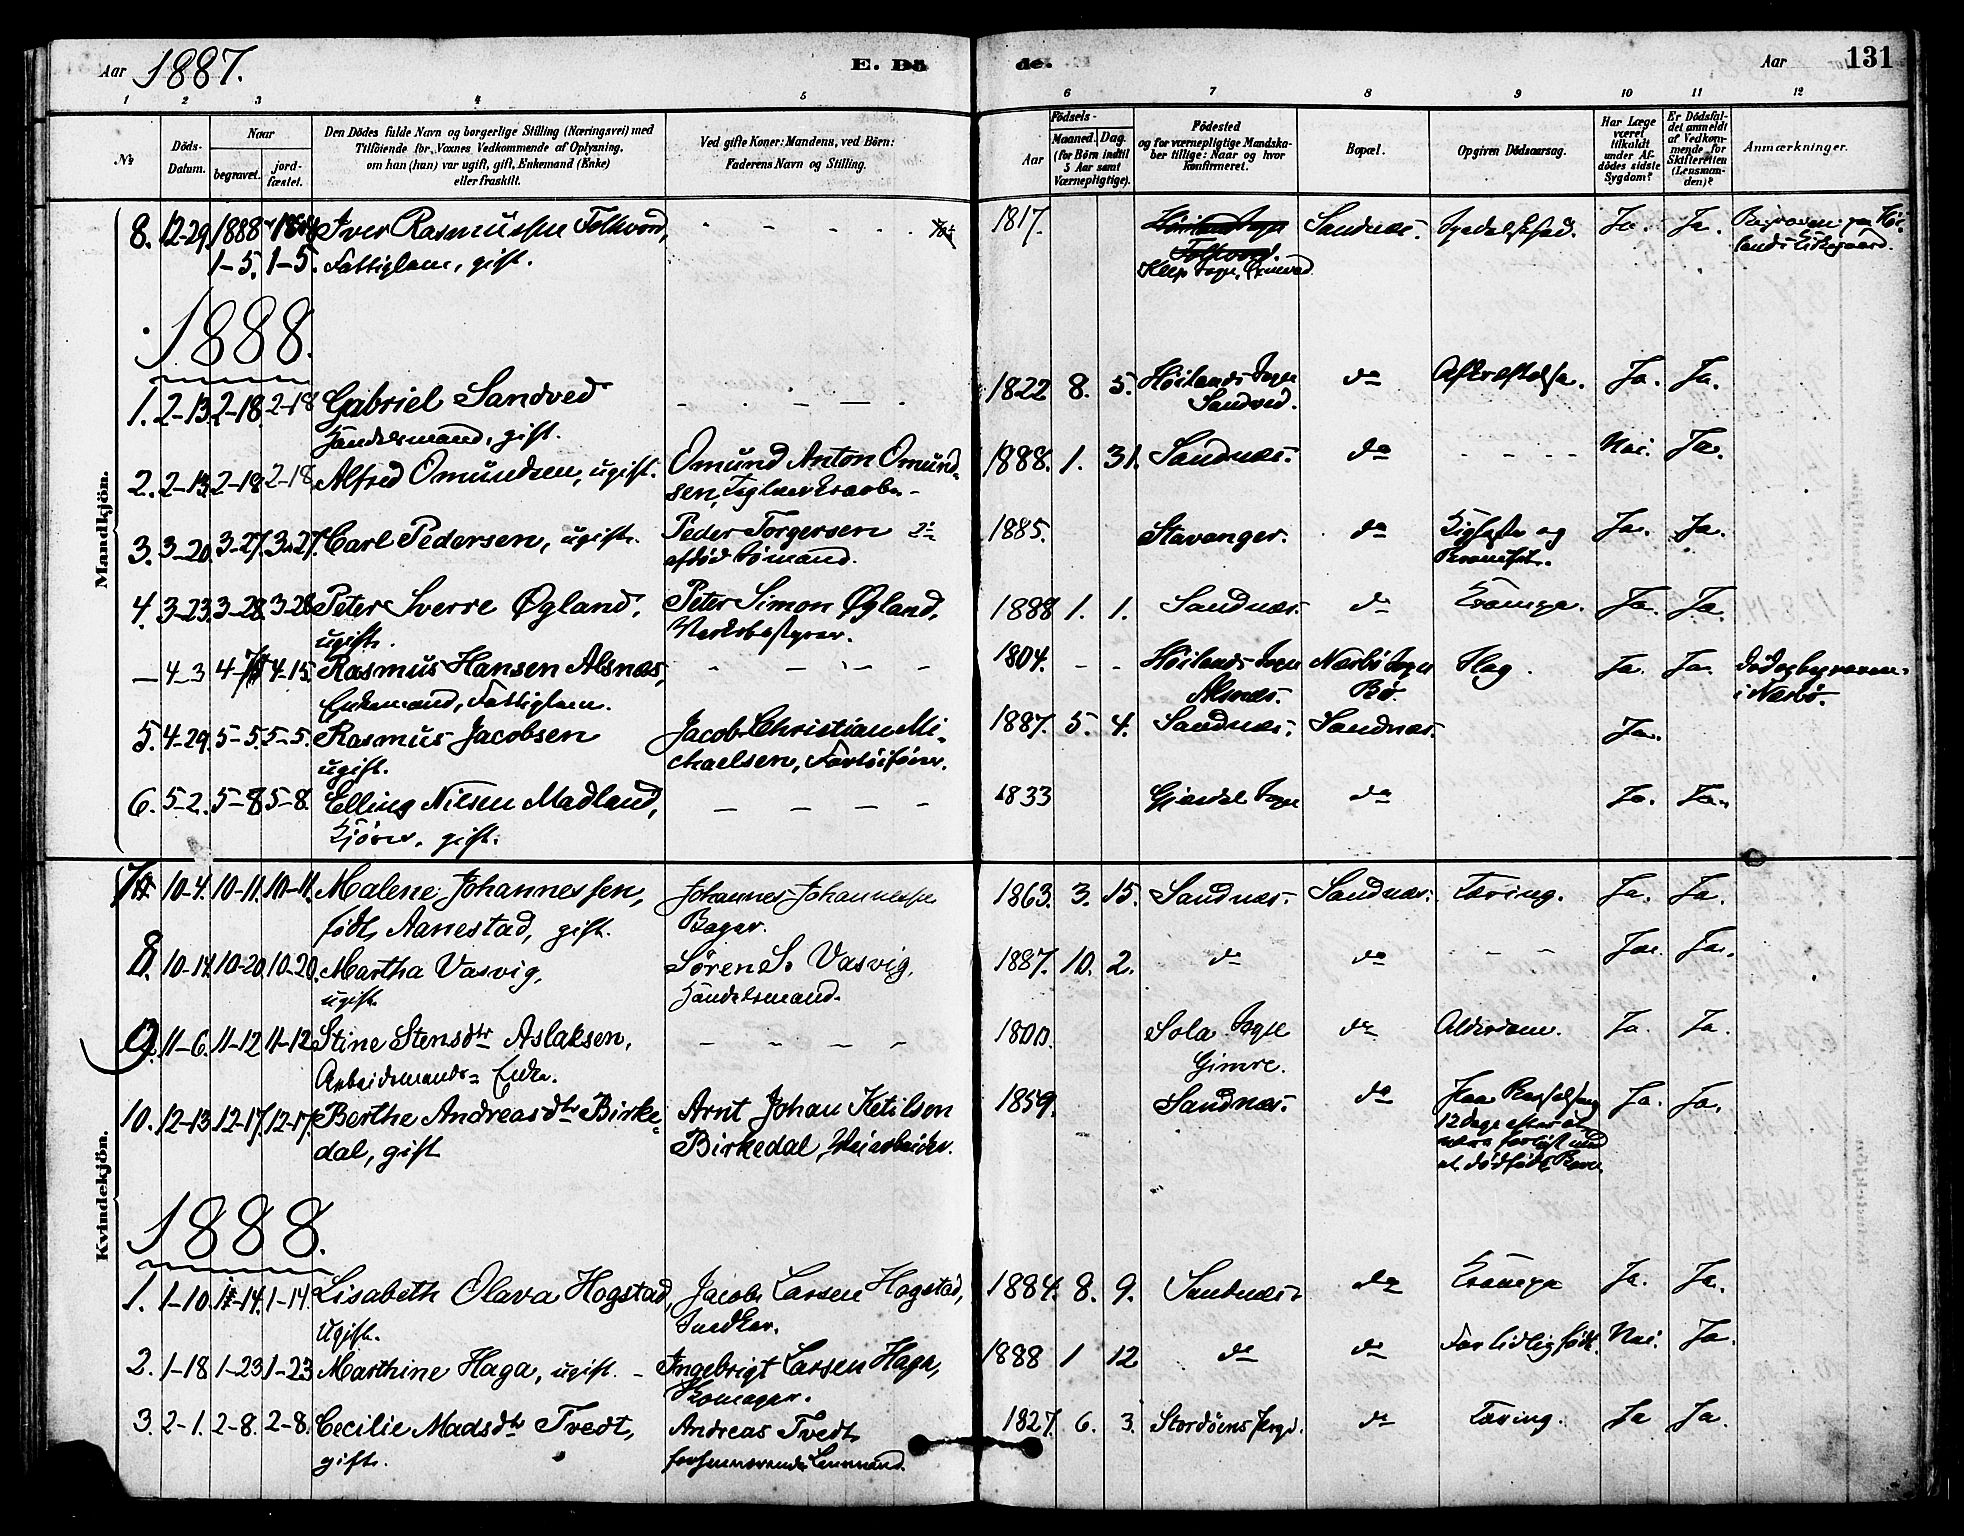 Aar 1887.
E. Dö
de.
Aar
131
1 2 3 4 5 6 7 8 9 10 11 12
№
Döds-
Datum.
Naar
begravet.
jord-
fæstet.
Den Dödes fulde Navn og borgerlige Stilling (Næringsvei) med
Tilföiende for Voxnes Vedkommende af Oplysning,
om han (hun) var ugift, gift, Enkemand (Enke)
eller fraskilt.
Ved gifte Koner: Mandens, ved Börn:
Faderens Navn og Stilling.
Födsels-
Aar
Maaned. Dag.
(for Börn indtil
5 Aar samt
Værnepligtige).
Födested
og for værnepligtige Mandska-
ber tillige: Naar og hvor
konfirmeret.
Bopæl.
Opgiven Dödsaarsag.
Har Læge
været
tilkaldt
under Af-
dödes sidste
Sygdom?
Er Dödsfal-
det anmeldt
af Vedkom-
mende for
Skifteretten
(Lensman-
den)?
Anmærkninger.
Mandkjön.
8. 12-29. 1888 1888 Iver Rasmussen Folkvord, 1817. Höilands Sogn Sandnæs. Spedalskhed. Ja. Ja. Begraven paa Höi-
1-5. 1-5. Fattiglem, gift. Folkvord. lands Kirkegaard.
Klep Sogn,
1888.
1. 2-13. 2-18. 2-18 Gabriel Sandved 1822 8. 5. Höilands Sogn do Afkræftelse. Ja. Ja.
Handelsmand, gift. Sandved.
2. 2-13. 2-18. 2-18. Alfred Omundsen, ugift. Omund Anton Omund- 1888. 1. 31. Sandnæs. do Nei. Ja.
sen, Teglværksarb.
3. 3-20. 3-27. 3-27. Carl Pedersen, ugift. Peder Torgersen 1885. Stavanger. do Kighoste og Ja. Ja.
afdöd Sömand.
4. 3-23. 3-28. 3-28 Peter Sverre Øgland, Peter Simon Øgland, 1888 1. 1. Sandnæs. do Krampe. Ja. Ja.
ugift. Værksbestyrer.
— 4-3 4-15. Rasmus Hansen Alsnæs, 1804. Höilands Sogn Nærbö Sogn Slag. Ja. Ja. Död og begraven
Enkemand, Fattiglem. Alsnæs. Bö. i Nærbö.
5. 4-29. 5-5. 5-5. Rasmus Jacobsen Jacob Christian Mi- 1887. 5. 4. Sandnæs. Sandnæs. Ja.
ugift. chaelsen, Fartöiförer.
6. 5-2. 5-8 5-8. Elling Nilsen Madland, 1833 Gjesdal Sogn do Ja. Ja.
Kjörer, gift.
Kvindekjön.
7 10-4. 10-11. 10-11. Malene Johannessen, Johannes Johannessen 1863. 3. 15. Sandnæs. Sandnæs. Tæring. Ja. Ja.
födt Aanestad, gift. Bager.
8. 10-14. 10-20. 10-20. Martha Vasvig, Sören S. Vasvig, 1887. 10. 2. do do Ja. Ja.
ugift. Handelsmand.
9. 11-6. 11-12. 11-12 Stine Stensdtr Aslaksen, 1800. Sola Sogn do Alderdom. Ja. Ja.
Arbeidsmands Enke. Gimre.
10. 12-13. 12-17. 12-17. Berthe Andreasdtr Birke- Arnt Johan Ketilson 1859. Sandnæs. do Ja. Ja.
dal, gift Birkedal, Veiarbeider. 12 Dage efter at
være forlöst med
et dödfödt Barn.
1888.
1. 1-10. 1-14. 1-14. Lisabeth Olava Hogstad, Jacob Larsen Hogstad, 1884. 8. 9. Sandnæs. do Krampe Ja. Ja.
Ugift. Snedker.
2. 1-18 1-23. 1-23. Marthine Haga, ugift. Ingebrigt Larsen Haga, 1888 1 12 do do For tidlig födt. Nei. Ja.
Skomager.
3. 2-1. 2-8. 2-8. Cecilie Madsdtr Tvedt, Andreas Tvedt, 1827. 6. 3. Stordöens Prgd. do Tæring. Ja Ja.
gift. forhenværende Lensmand.